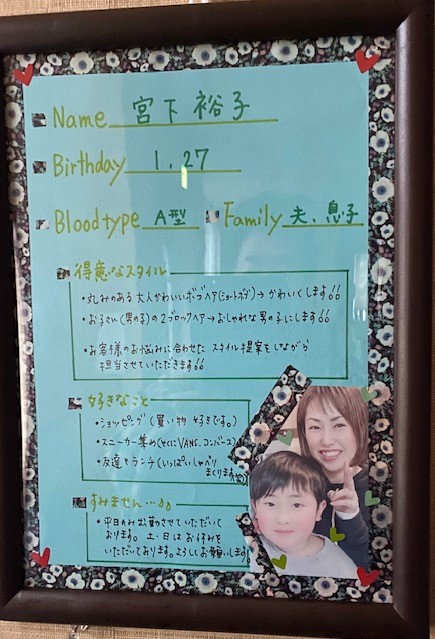 Name 宮下 裕子
Birthday 1.27
Bloodtype A型 Family 夫、息子
得意なスタイル
・丸みのある大人かわいいボブヘア(ショートボブ)→かわいくします!!
・お子さん(男の子)の2ブロックヘアー→おしゃれな男の子にします!!
・お客様のお悩みに合わせた スタイル提案をしながら
担当させていただきます!!
好きなこと
・ショッピング(買い物 好きです。)
・スニーカー集め(とくにVANS、コンバース)
・友達とランチ(いっぱいしゃべり
まくります(笑))
すみません…
・平日のみ出勤させていただいて
おります。土・日はお休みを
いただいております。よろしくお願いします。